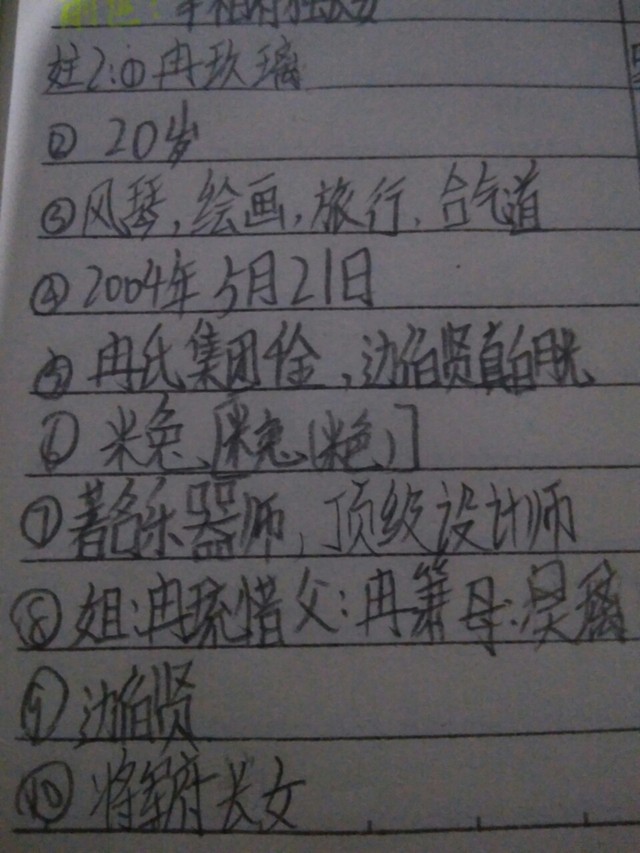 女2:①冉玖璃
② 20岁
③风琴,绘画,旅行,合气道
④2004年5月21日
⑤冉氏集团千金,边伯贤真白月光
⑥米兔
⑦著名乐器师,顶级设计师
⑧姐:冉琉惜 父:冉箫 母:
⑨边伯贤
⑩将军府长女